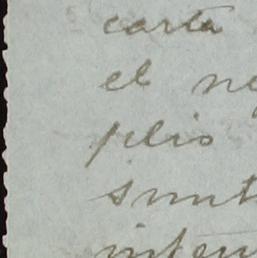 carta
el ne
plio
sunt
inten